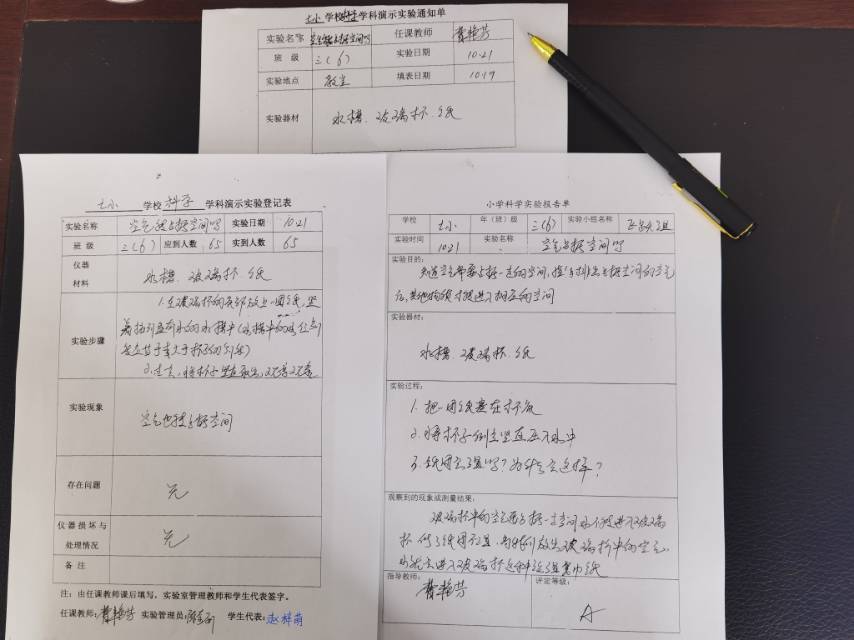 七小 学校 科学 学科演示实验通知单
实验名称 空气能占据空间吗 任课教师 曹艳芳
班 级 三(6) 实验日期 10.21
实验地点 教室 填表日期 10.19
实验器材 水槽、玻璃杯、纸
七小 学校 科学 学科演示实验登记表
实验名称 空气能占据空间吗 实验日期 10.21
班 级 三(6) 应到人数 65 实到人数 65
仪器
材料 水槽、玻璃杯、纸
实验步骤 1.在玻璃杯的底部放上一团纸,竖
着扣到 水的水槽中(水槽中的水位
大于杯子的 )
2. 将杯子竖直取出,观察
实验现象 空气也能占据空间
存在问题 无
仪器损坏与
处理情况 无
备 注
注:由任课教师课后填写,实验室管理教师和学生代表签字。
任课教师: 曹艳芳 实验管理员: 学生代表: 赵梓萌
小学科学实验报告单
学校 七小 年(班)级 三(6) 实验小组名称
实验时间 10.21 实验名称 空气占据空间吗
实验目的:
知道空气需要占据一定的空间,
其他物质才能进入相应的空间
实验器材:
水槽、玻璃杯、纸
实验过程:
1. 把一团纸塞在杯底
2.将杯子倒立竖直压入水中
3. 纸团会湿吗?为什么会这样?
观察到的现象或测量结果:
玻璃杯中的空气要占据一定空间,水不能进入玻璃
杯, 纸团不湿, 玻璃杯中的空气,
水就会进入玻璃杯 纸
指导教师: 曹艳芳 评定等级: A